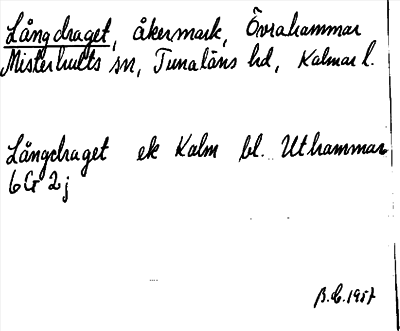 Långdraget, åkermark, Övrahammar
Misterhults sn, Tunaläns hd, Kalmar l.
Långdraget ek Kalm bl. Uthammar
6G 2j
B.C. 1957